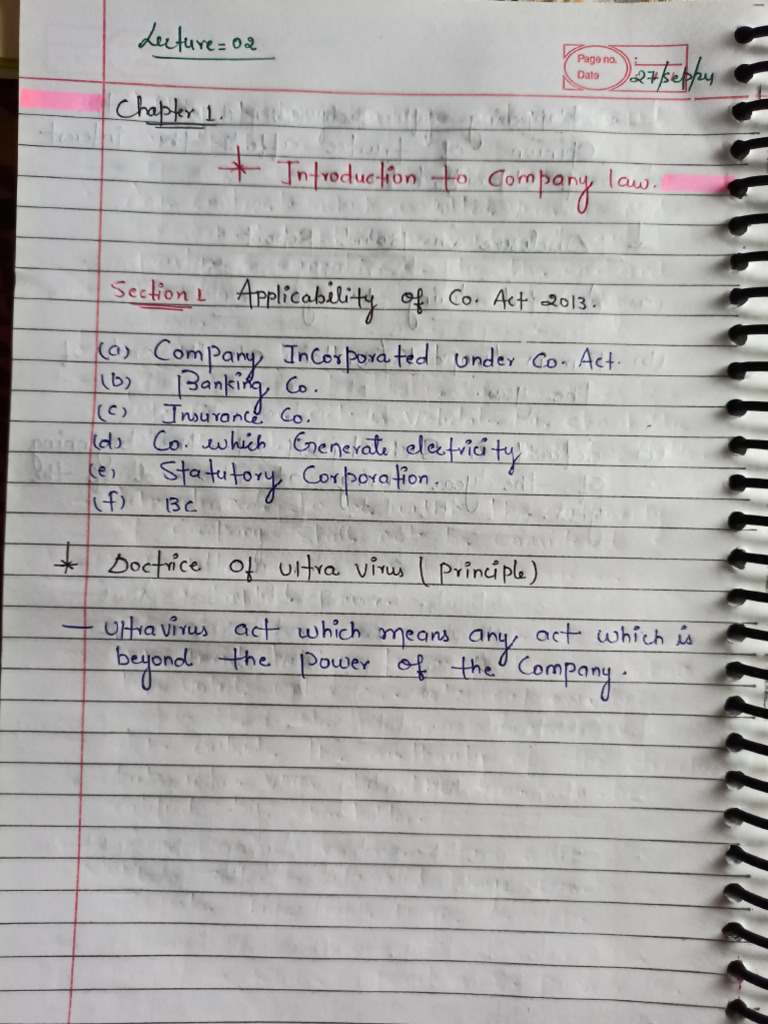 Lecture = 02
Page no. :
Date 27/Sep/24
Chapter 1.
* Introduction to Company law.
Section 1 Applicability of Co. Act 2013.
(a) Company Incorporated under Co. Act.
(b) Banking Co.
(c) Insurance Co.
(d) Co. which Generate electricity
(e) Statutory Corporation.
(f) BC
* Doctrice of ultra virus (principle)
— Ultravirus act which means any act which is
beyond the power of the Company.